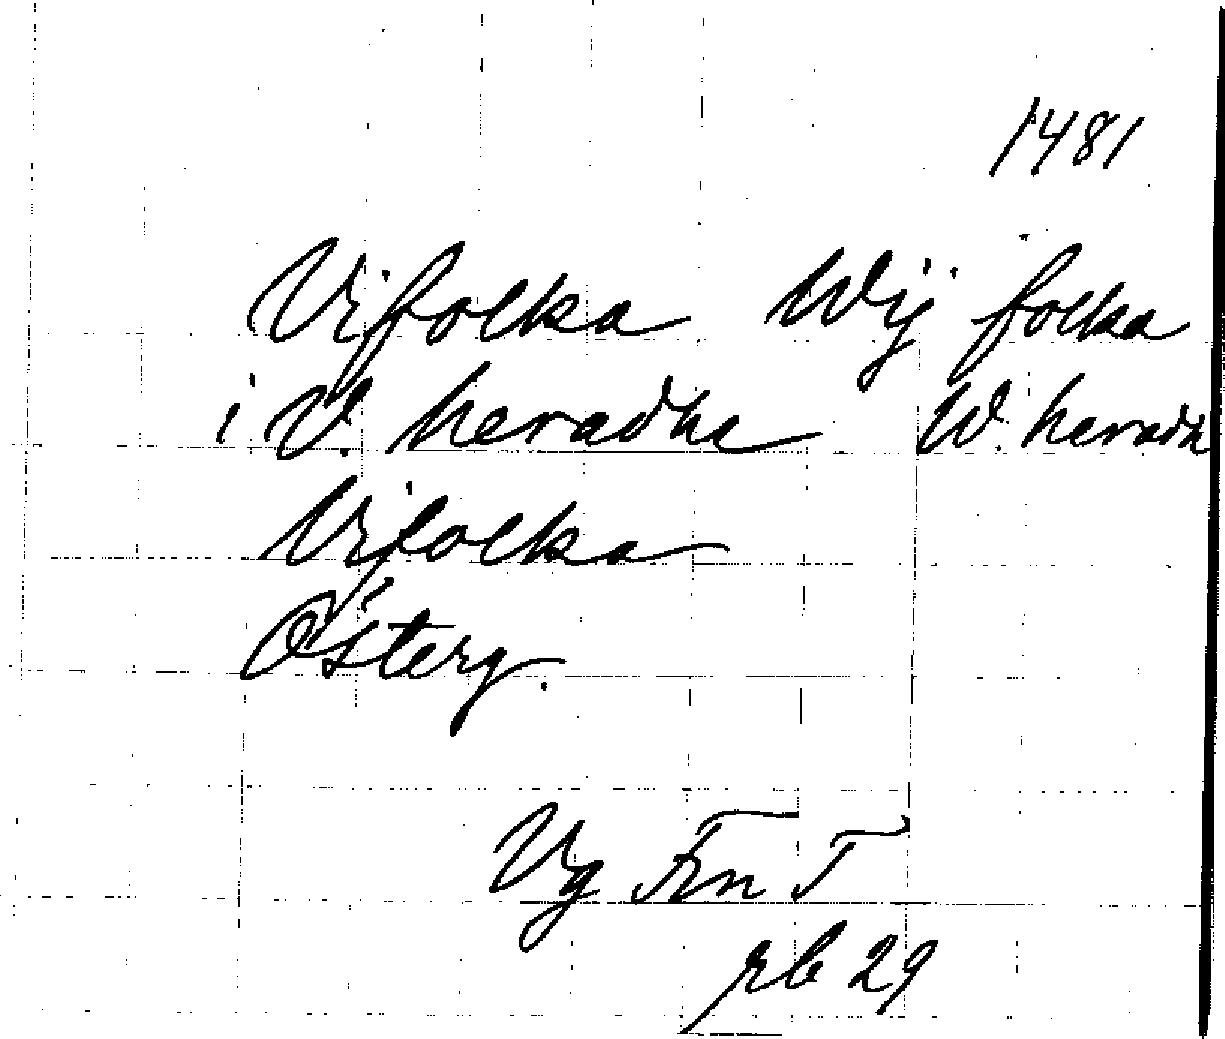 1481
Vifolka Wij folka
i V. heradhe W. heradh
Vifolka
Österg.
Vg Frn T
sb 29